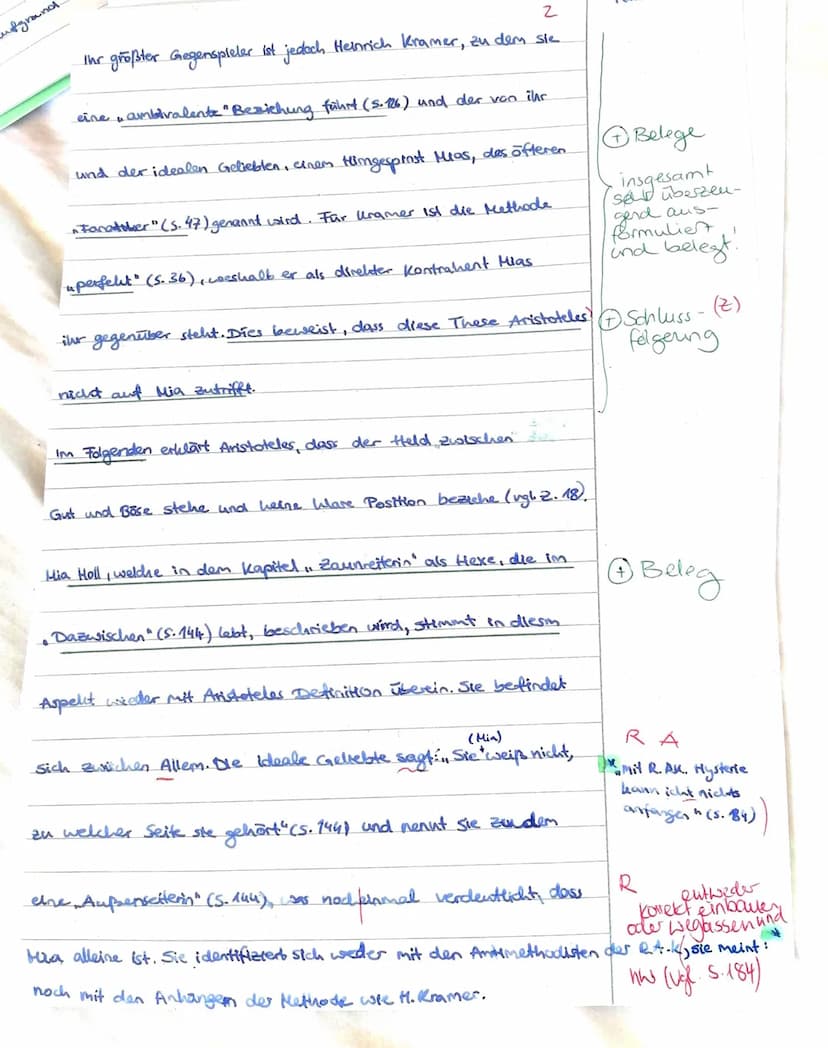 ufgrund
2
Ihr größter Gegenspieler ist jedoch Heinrich Kramer, zu dem sie
eine „ambivalente" Beziehung führt (S. 126) und der von ihr
und der idealen Geliebten, einem Hirngespinst Mias, des öfteren
„Fanatiker" (S. 47) genannt wird. Für Kramer ist die Methode
„perfekt" (S. 36), weshalb er als direkter Kontrahent Mias
ihr gegenüber steht. Dies beweist, dass diese These Aristoteles
nicht auf Mia zutrifft.
Im Folgenden erklärt Aristoteles, dass der Held zwischen
Gut und Böse stehe und keine klare Position beziehe (vgl. Z. 18).
Mia Holl, welche in dem Kapitel „Zaunreiterin" als Hexe, die im
„Dazwischen" (S. 144) lebt, beschrieben wird, stimmt in diesm
Aspekt wieder mit Aristoteles Definition überein. Sie befindet
sich zwischen Allem. Die ideale Geliebte sagt: „Sie (Mia) weiß nicht,
zu welcher Seite sie gehört" (S. 144) und nennt sie zudem
eine „Außenseiterin" (S. 144), was noch einmal verdeutlicht, dass
Mia alleine ist. Sie identifiziert sich weder mit den Antimethodisten der R.A.K., sie meint:
noch mit den Anhängern der Methode wie H. Kramer.
+ Belege
insgesamt
sehr überzeu-
gend aus-
formuliert
und belegt!
+ Schluss- (Z)
folgerung
+ Beleg
R A
* „mit R.A.K. Hysterie
kann ich nichts
anfangen" (S. 84)
R
entweder
korrekt einbauen
oder weglassen und
(vgl. S. 184)